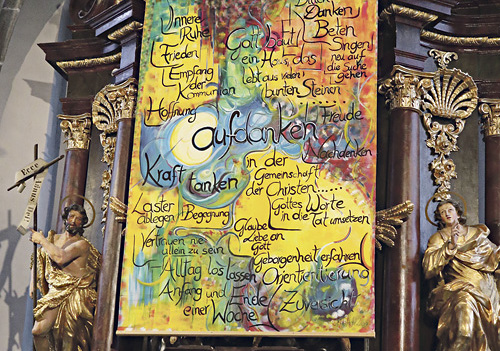 Innere
Ruhe
Frieden
Empfang
der
Kommunion
Hoffnung
Gott baut
ein Haus, das
lebt aus vielen
bunten Steinen
Bitten
Danken
Beten
Singen
neu auf
die Suche
gehen
aufdanken
Freude
Nachdenken
Kraft tanken
in der
Gemeinschaft
der Christen......
Laster
ablegen
Begegnung
Gottes Worte
in die Tat umsetzen
Glaube
Lebe an
Gott
Vertrauen nie
allein zu sein
Geborgenheit erfahren
Alltag los lassen
Orientierung
Anfang und Ende
einer Woche
Zuversicht
Ecce
Agnus Dei